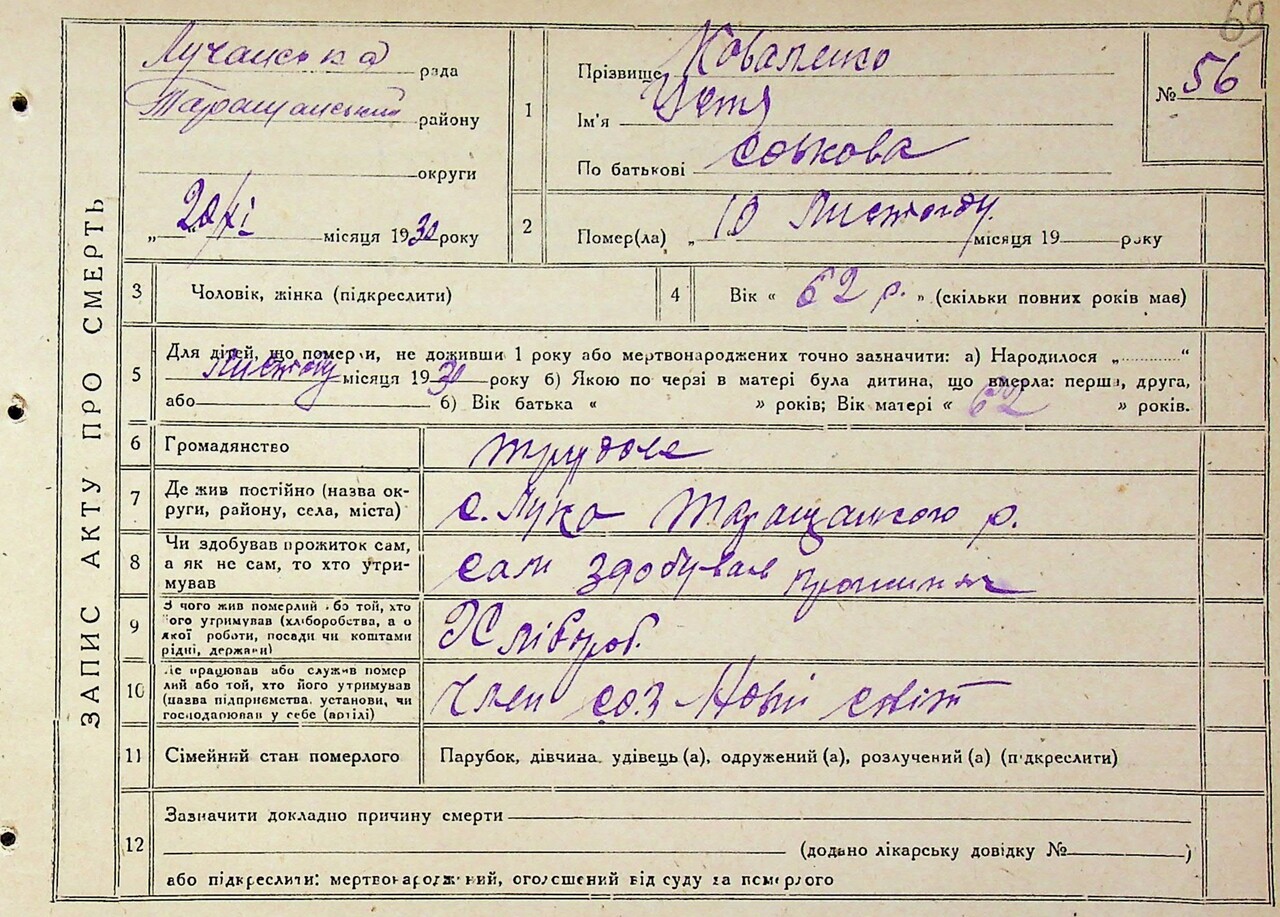 69
ЗАПИС АКТУ ПРО СМЕРТЬ
Лучанська рада
Таращанський району
округи
„ 20/XI місяця 1930 року
1
Прізвище Коваленко
Ім'я Устя
По батькові Сыкова
№ 56
2
Помер(ла) „ 10 Листопаду місяця 19 року
3
Чоловік, жінка (підкреслити)
4
Вік « 62 р. » (скільки повних років має)
5
Для дітей, що померли, не доживши 1 року або мертвонароджених точно зазначити: а) Народилося „ “
Листопаду місяця 1930 року б) Якою по черзі в матері була дитина, що вмерла: перша, друга,
або б) Вік батька « » років; Вік матері « 62 » років.
6
Громадянство
7
Де жив постійно (назва ок-
руги, району, села, міста)
с. Лука Таращанського р.
8
Чи здобував прожиток сам,
а як не сам, то хто утри-
мував
сам здобував
9
З чого жив померлий або той, хто
його утримував (хліборобства, а о
якої роботи, посади чи коштами
рідні, держави)
Хлібороб.
10
Де працював або служив помер
лий або той, хто його утримував
(назва підприємства, установи, чи
господарював у себе (артілі)
Член соз Новий світ
11
Сімейний стан померлого
Парубок, дівчина, удівець (а), одружений (а), розлучений (а) (підкреслити)
12
Зазначити докладно причину смерти
(додано лікарську довідку № )
або підкреслити: мертвонароджений, оголошений від суду за померлого